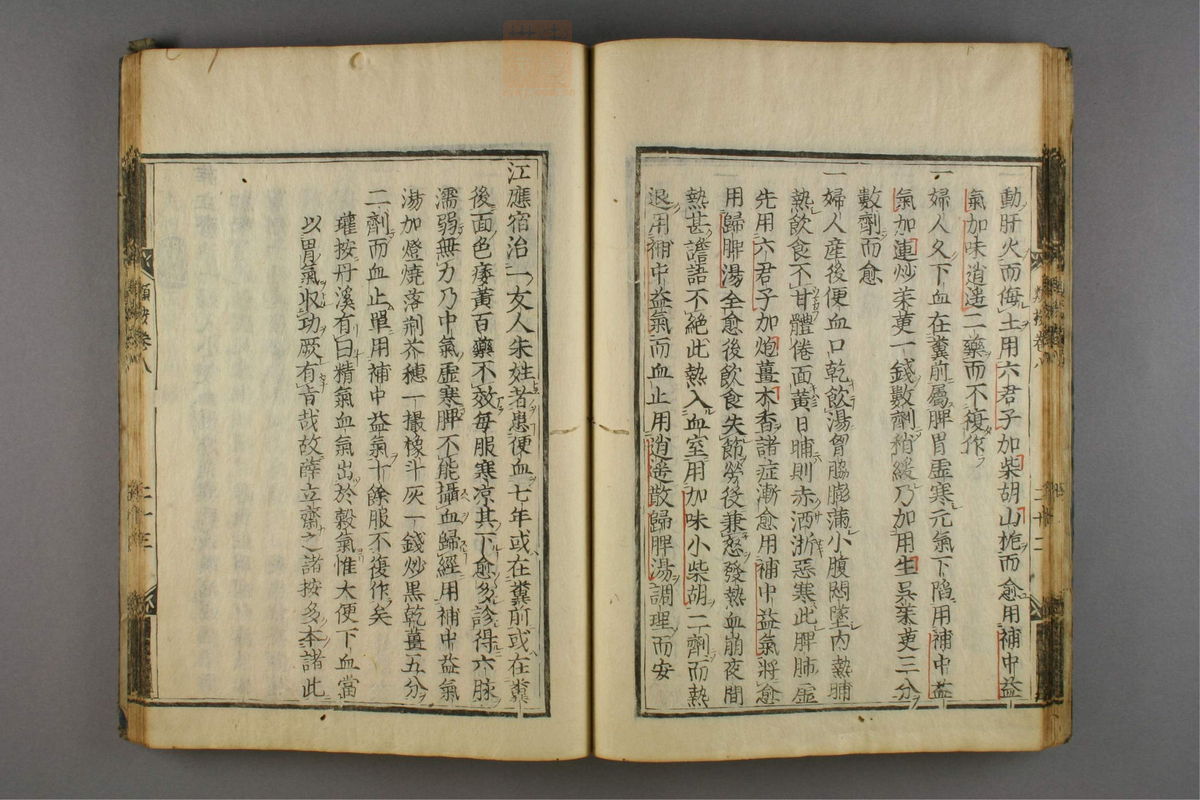 動肝火而侮土用六君子加柴胡山梔而愈用補中益
氣加味逍遙二藥而不復作
一婦人久下血在糞前屬脾胃虛寒元氣下陷用補中益
氣加連炒茱萸一錢數劑稍緩乃加用生吳茱萸三分
數劑而愈
一婦人產後便血口乾飲湯胷脇膨滿小腹悶墜內熱晡
熱飲食不甘體倦面黃日晡則赤洒淅惡寒此脾肺虛
先用六君子加炮薑木香諸症漸愈用補中益氣將愈
用歸脾湯全愈後飲食失節勞後兼怒發熱血崩夜間
熱甚譫語不絕此熱入血室用加味小柴胡二劑而熱
退用補中益氣而血止用逍遙散歸脾湯調理而安
類按卷八
二十三
江應宿治一女人朱姓者患便血七年或在糞前或在糞
後面色痿黃百藥不效每服寒涼其下愈多診得六脉
濡弱無力乃中氣虛寒脾不能攝血歸經用補中益氣
湯加燈燒落荊芥穗一撮橡斗灰一錢炒黑乾薑五分
二劑而血止單用補中益氣十餘服不復作矣
瓘按丹溪有曰精氣血氣出於穀氣惟大便下血當
以胃氣収功厥有旨哉故薛立齋之諸按多本諸此